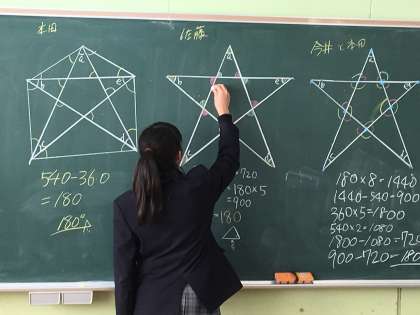 本田
a
b
e
c
d
540-360
=180
180°
佐藤
a
b
e
=720
=180×5
=900
=180
今井と本田
a
b
e
180×8=1440
1440-540=900
360×5=1800
540×2=1080
1800-1080=720
900-720=180